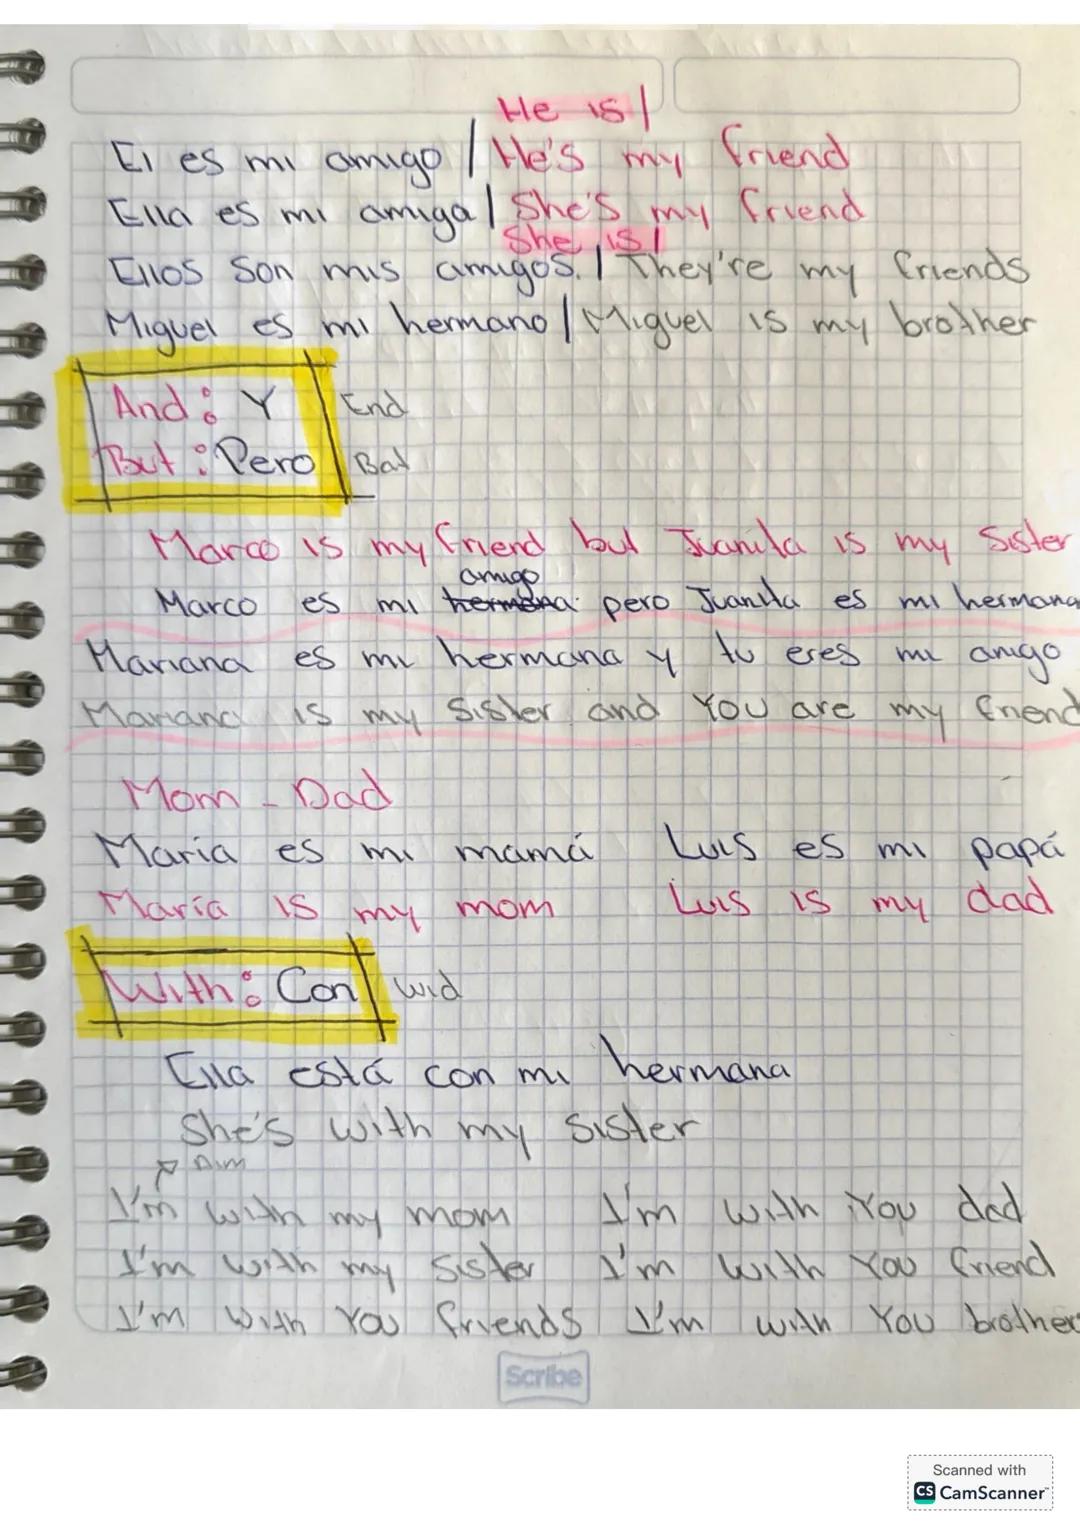 He is /
El es mi amigo / He's my friend
Ella es mi amiga / She's my friend
She is /
Ellos son mis amigos. / They're my friends
Miguel es mi hermano / Miguel is my brother
And: Y End
But: Pero Bat
Marco is my friend but Juanita is my sister
amigo
Marco es mi hermana pero Juanita es mi hermana
Mariana es mi hermana y tu eres mi amigo
Mariana is my sister and You are my friend
Mom - Dad
María es mi mamá Luis es mi papá
María is my mom Luis is my dad
With: Con wid
Ella está con mi hermana
She's with my sister
Aim
I'm with my mom I'm with You dad
I'm with my sister I'm with You friend
I'm with You friends I'm with You brother
Scribe
Scanned with
CS CamScanner